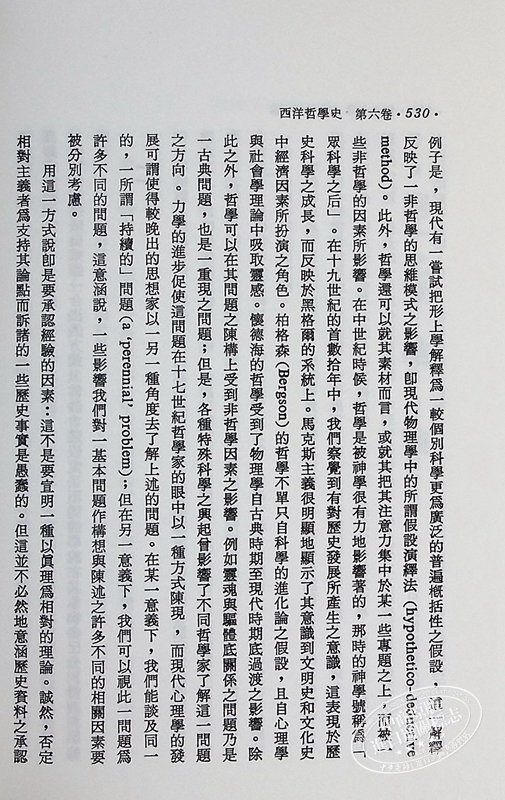 西洋哲學史　第六卷・530・
例子是，現代有一嘗試把形上學解釋爲一較個別科學更爲廣泛的普遍概括性之假設，這解釋
反映了一非哲學的思維模式之影響，卽現代物理學中的所謂假設演繹法 (hypothetico-deductive
method)。此外，哲學還可以就其素材而言，或就其把其注意力集中於某一些專題之上，而被一
些非哲學的因素所影響。在中世紀時候，哲學是被神學很有力地影響著的，那時的神學號稱爲「
眾科學之后」。在十九世紀的首數拾年中，我們察覺到有對歷史發展所產生之意識，這表現於歷
史科學之成長，而反映於黑格爾的系統上。馬克斯主義很明顯地顯示了其意識到文明史和文化史
中經濟因素所扮演之角色。柏格森 (Bergson) 的哲學不單只自科學的進化論之假設，且自心理學
與社會學理論中吸取靈感。懷德海的哲學受到了物理學自古典時期至現代時期底過渡之影響。除
此之外，哲學可以在其問題之陳構上受到非哲學因素之影響。例如靈魂與軀體底關係之問題乃是
一古典問題，也是一重現之問題；但是，各種特殊科學之興起曾影響了不同哲學家了解這一問題
之方向。力學的進步促使這問題在十七世紀哲學家的眼中以一種方式陳現，而現代心理學的發
展可謂使得較晚出的思想家以一另一種角度去了解上述的問題。在某一意義下，我們能談及同一
的，一所謂「持續的」問題 (a 'perennial' problem)；但在另一意義下，我們可以視此一問題爲
許多不同的問題，這意涵說，一些影響我們對一基本問題作構想與陳述之許多不同的相關因素要
被分別考慮。
用這一方式說卽是要承認經驗的因素：這不是要宣明一種以眞理爲相對的理論。誠然，否定
相對主義者爲支持其論點而訴諸的一些歷史事實是愚蠢的。但這並不必然地意涵歷史資料之承認